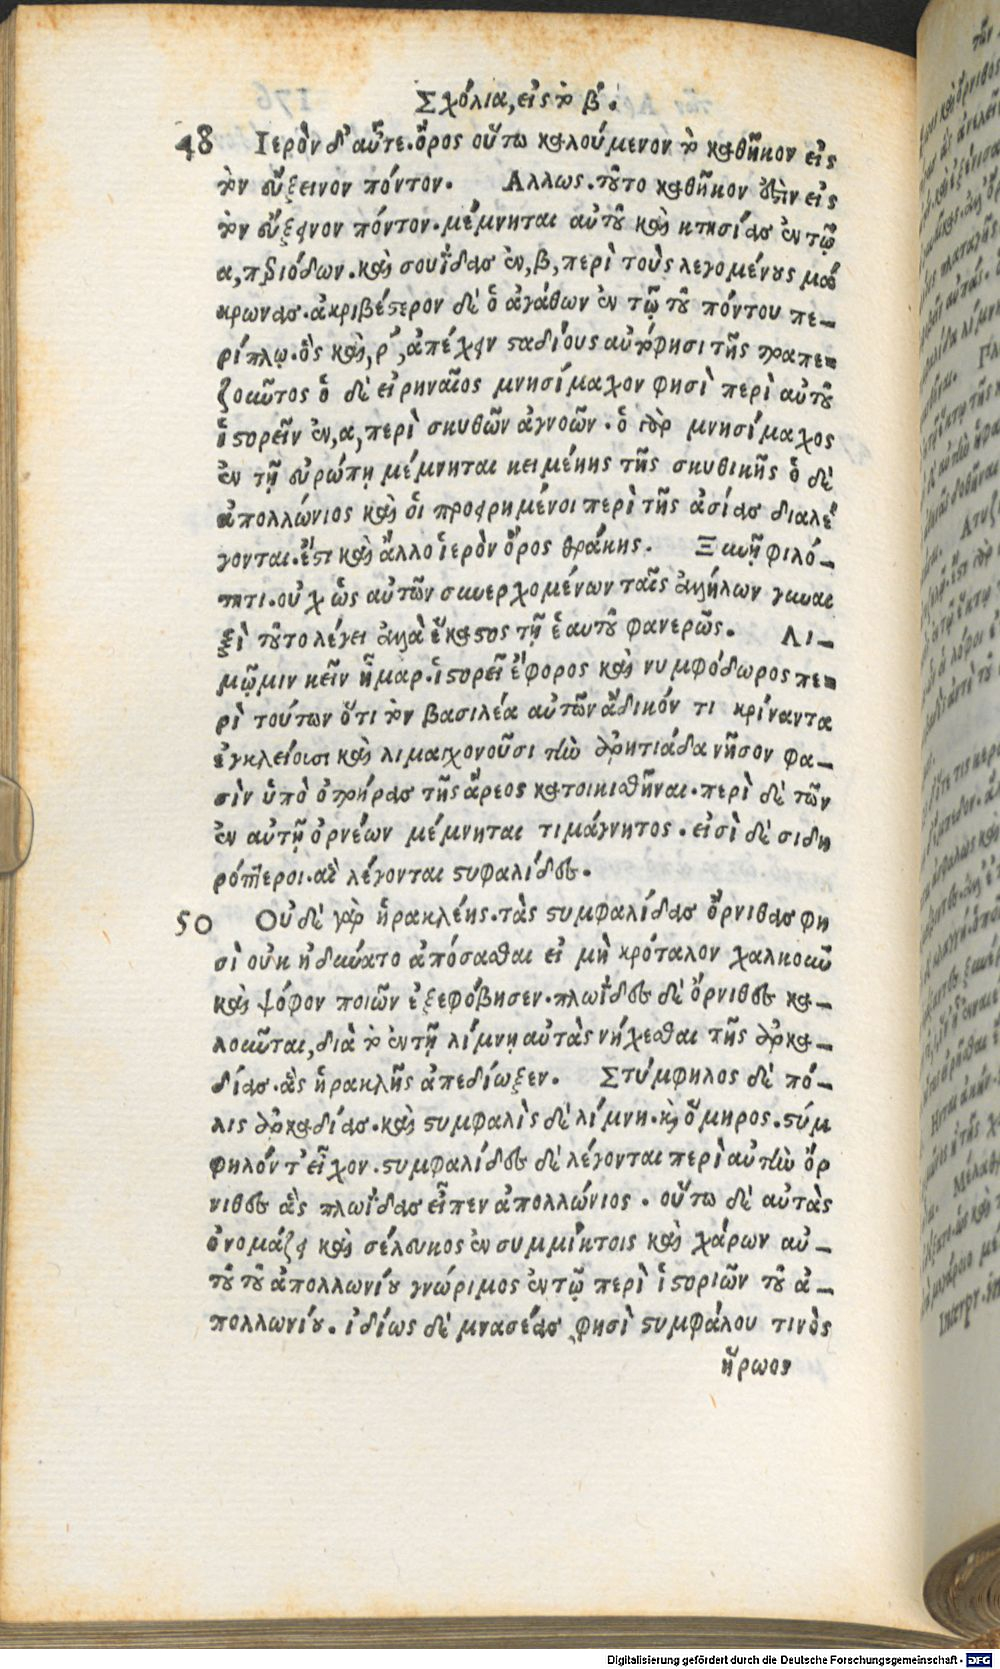 Σχόλια, εἰς τὸ β΄.
48 Ιερὸν δ' αὖτε. ὄρος οὕτω καλούμενον τὸ καθῆκον εἰς
τὸν εὔξεινον πόντον. Αλλως. τοῦτο καθῆκον ἐστὶν εἰς
τὸν εὔξεινον πόντον. μέμνηται αὐτοῦ καὶ κτησίας ἐν τῷ
α, περιόδων. καὶ σουΐδας ἐν, β, περὶ τοὺς λεγομένους μά
κρωνας. ἀκριβέστερον δὲ ὁ ἀγάθων ἐν τῷ τοῦ πόντου πε-
ρίπλῳ. ὃς καὶ, ρ΄, ἀπέχειν σταδίους αὐτό φησι τῆς τραπε-
ζοῦντος ὁ δὲ εἰρηναῖος μνησίμαχον φησὶ περὶ αὐτοῦ
ἱστορεῖν ἐν, α, περὶ σκυθῶν ἀγνοῶν. ὁ γὰρ μνησίμαχος
ἐν τῇ εὐρώπῃ μέμνηται κειμένης τῆς σκυθικῆς ὁ δὲ
ἀπολλώνιος καὶ οἱ προειρημένοι περὶ τῆς ἀσίας διαλέ
γονται. ἔστι καὶ ἄλλο ἱερὸν ὄρος θράκης. Ξυνῇ φιλό-
τητι. οὐχ ὡς αὐτῶν συνερχομένων ταῖς ἀλλήλων γυναι
ξὶ τοῦτο λέγει ἀλλὰ ἕκαστος τῇ ἑαυτοῦ φανερῶς. Λι-
μῷ μιν κεῖν ἦμαρ. ἱστορεῖ ἔφορος καὶ νυμφόδωρος πε-
ρὶ τούτων ὅτι τὸν βασιλέα αὐτῶν ἄδικόν τι κρίναντα
ἐγκλείουσι καὶ λιμαιχονοῦσι τὴν ἀρητιάδα νῆσον φα-
σὶν ὑπὸ ὀτρήρας τῆς ἄρεος κατοικισθῆναι. περὶ δὲ τῶν
ἐν αὐτῇ ὀρνέων μέμνηται τιμάγνητος. εἰσὶ δὲ σιδη
ρόπτεροι. αἳ λέγονται στυφαλίδες.
50 Οὐδὲ γὰρ ἡρακλέης. τὰς στυμφαλίδας ὄρνιθας φη
σὶ οὐκ ἠδύνατο ἀπώσασθαι εἰ μὴ κρόταλον χαλκοῦν
καὶ ψόφον ποιῶν ἐξεφόβησεν. πλωΐδες δὲ ὄρνιθες κα-
λοῦνται, διὰ τὸ ἐν τῇ λίμνῃ αὐτὰς νήχεσθαι τῆς ἀρκα-
δίας. ἃς ἡρακλῆς ἀπεδίωξεν. Στύμφηλος δὲ πό-
λις ἀρκαδίας. καὶ στυμφαλὶς δὲ λίμνη. καὶ ὅμηρος. στύμ
φηλόν τ' εἶχον. στυμφαλίδες δὲ λέγονται περὶ αὐτὴν ὄρ
νιθες ἃς πλωΐδας εἶπεν ἀπολλώνιος. οὕτω δὲ αὐτὰς
ὀνομάζει καὶ σέλευκος ἐν συμμίκτοις καὶ χάρων αὐ-
τοῦ τοῦ ἀπολλωνίου γνώριμος ἐν τῷ περὶ ἱστοριῶν τοῦ ἀ-
πολλωνίου. ἰδίως δὲ μνασέας φησὶ στυμφάλου τινὸς
ἥρωος
Digitalisierung gefördert durch die Deutsche Forschungsgemeinschaft - DFG